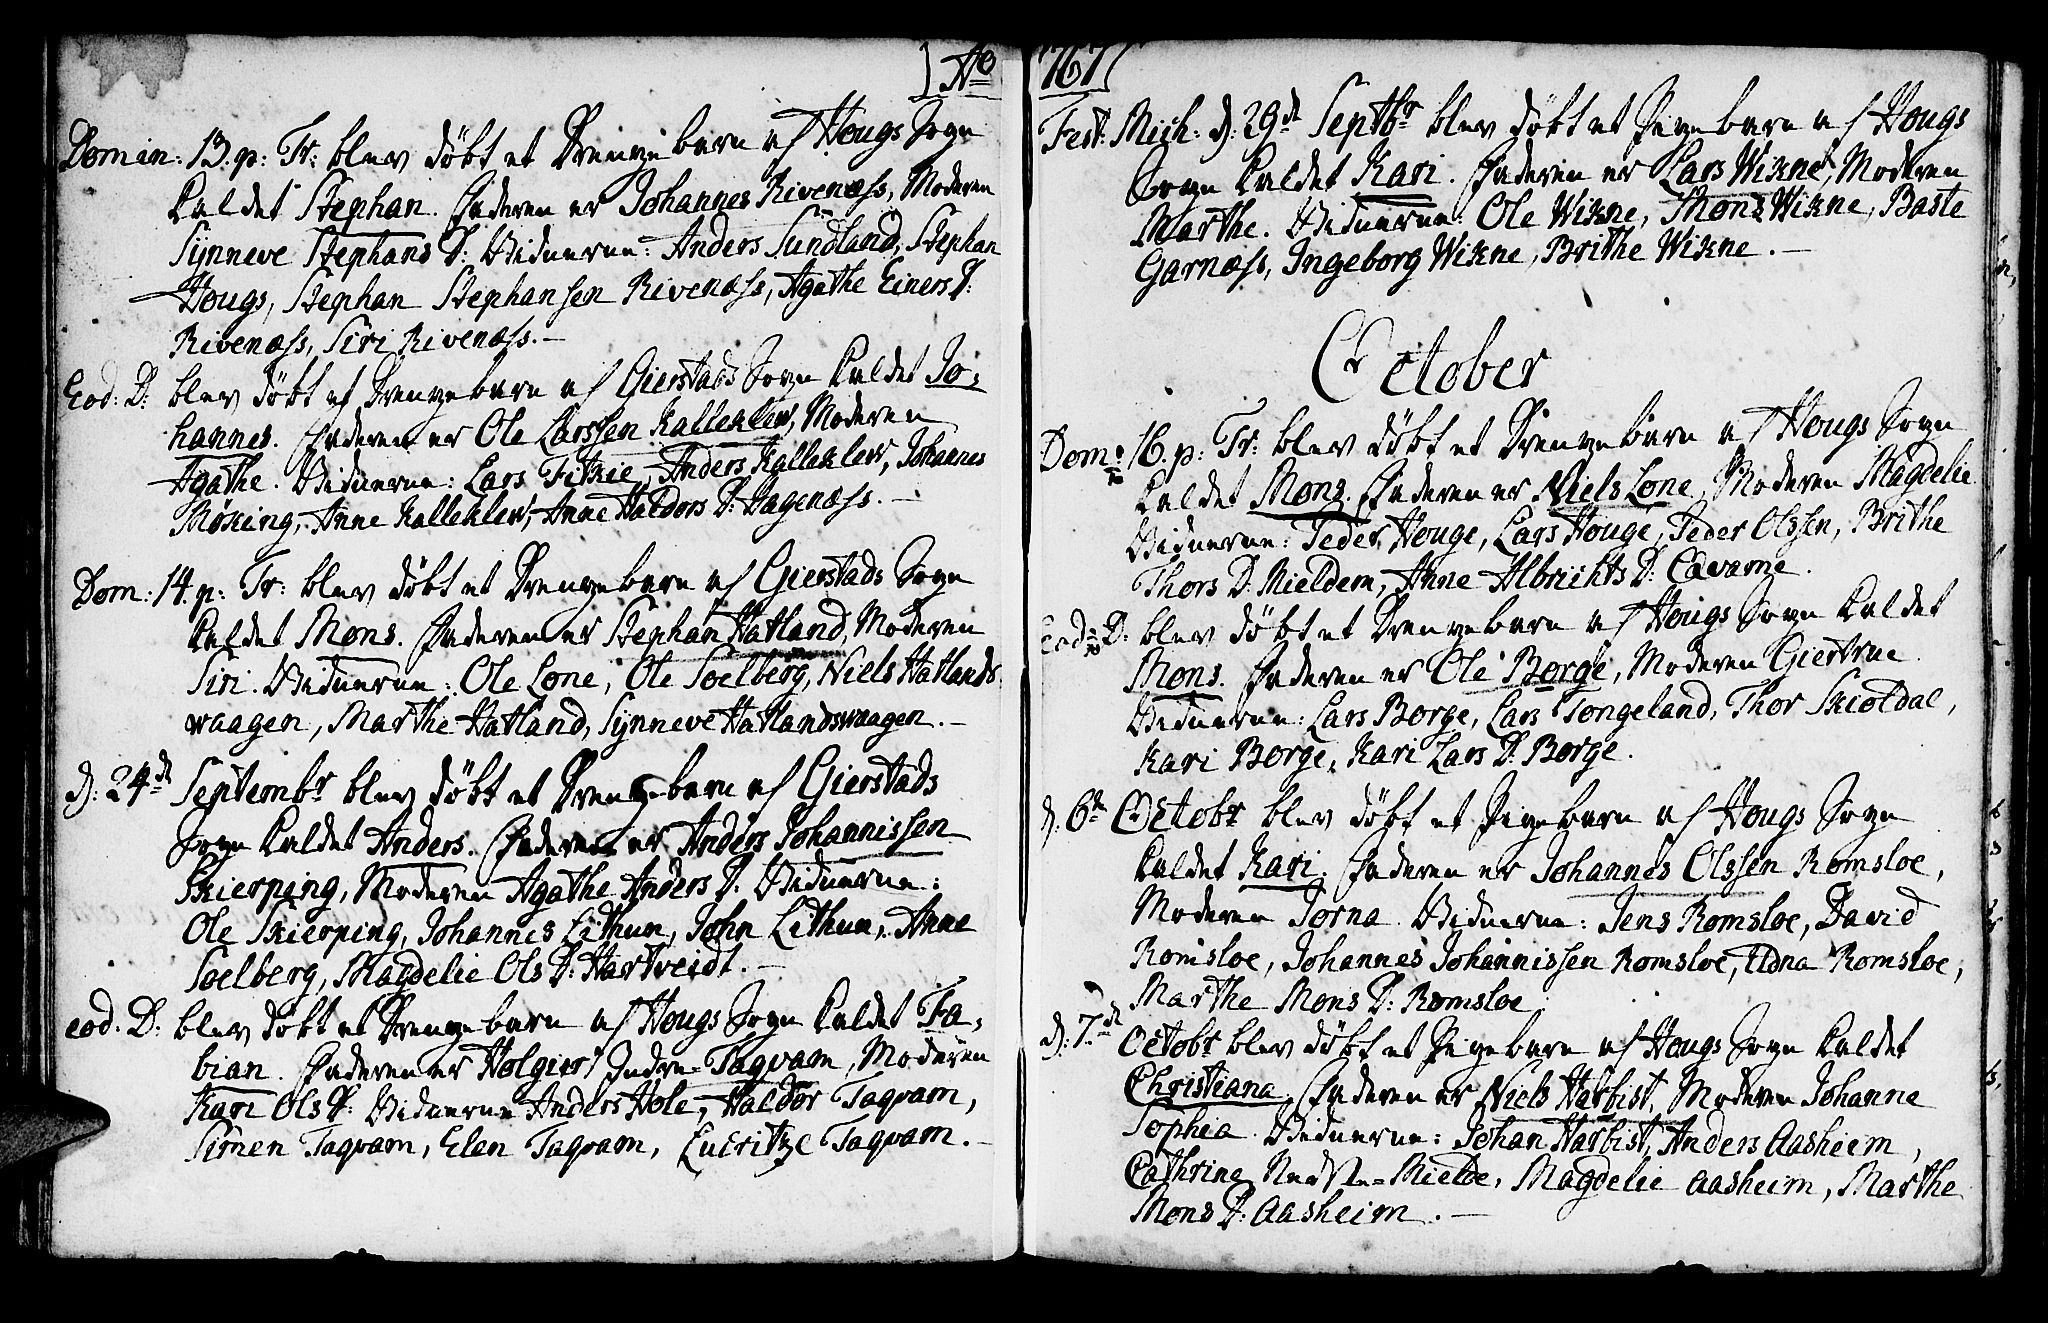 Ao
Domin: 13. p: Tr: blev døbt et Drengebarn af Hougs Sogn
kaldet Stephan. Faderen er Johannes Rivenæss, Moderen
Synneve Stephans D: Vidnerne: Anders Sundland, Stephan
Hougs, Stephan Stephansen Rivenæss, Agathe Einers D:
Rivenæss, Siri Rivenæss.
Eod: D: blev døbt et Drengebarn af Gierstads Sogn kaldet Jo-
hannes. Faderen er Ole Larssen Kalleklew, Moderen
Agathe. Vidnerne: Lars Fitkie, Anders Kalleklew, Johannes
Møking, Anne Kalleklew, Anne Haldors D: Hagenæss.
Dom: 14. p: Tr: blev døbt et Drengebarn af Gierstads Sogn
kaldet Mons. Faderen er Stephan Hatland, Moderen
Siri. Vidnerne: Ole Lone, Ole Soelberg, Niels Hatlands
waagen, Marthe Hatland, Synneve Hatlandswaagen.
d: 24de Septembr blev døbt et Drengebarn af Gierstads
Sogn kaldet Anders. Faderen er Anders Johannissen
Skierping, Moderen Agathe Anders D: Vidnerne:
Ole Skierping, Johannes Lithun, John Lithun, Anne
Soelberg, Magdelie Ols D: Hartveidt.
eod: D: blev døbt et Drengebarn af Hougs Sogn kaldet Fa-
bian. Faderen er Holgier Indre-Taqvam, Moderen
Kari Ols D: Vidnerne Anders Hole, Haldor Taqvam,
Simen Taqvam, Elen Taqvam, Taqvam.
1767
Fest: Mich: d: 29de Septbr blev døbt et Pigebarn af Hougs
Sogn kaldet Kari. Faderen er Lars Wikne, Moderen
Marthe. Vidnerne: Ole Wikne, Mons Wikne, Baste
Garnæss, Ingeborg Wikne, Brithe Wikne.
October
Dom: 16. p: Tr: blev døbt et Drengebarn af Hougs Sogn
kaldet Mons. Faderen er Niels Lone, Moderen Magdelie
Vidnerne: Peder Houge, Lars Houge, Peder Olssen, Brithe
Thors D: Mieldem, Anne Albrichts D: Cavarne.
Eod: D: blev døbt et Drengebarn af Hougs Sogn kaldet
Mons. Faderen er Ole Borge, Moderen Giertrue
Vidnerne: Lars Borge, Lars Tongeland, Thor Skioldal,
Kari Borge, Kari Lars D: Borge.
d: 6te Octobr blev døbt et Pigebarn af Hougs Sogn
kaldet Kari. Faderen er Johannes Olssen Romsloe,
Moderen Jorna. Vidnerne: Jens Romsloe, David
Romsloe, Johannes Johannissen Romsloe, Romsloe,
Marthe Mons D: Romsloe
d: 7de Octobr blev døbt et Pigebarn af Hougs Sogn kaldet
Christiana. Faderen er Niels Harbist, Moderen Johanne
Sophia. Vidnerne: Johan Harbist, Anders Aasheim,
Cathrina Nedste-Mielde, Magdelie Aasheim, Marthe
Mons D: Aasheim.